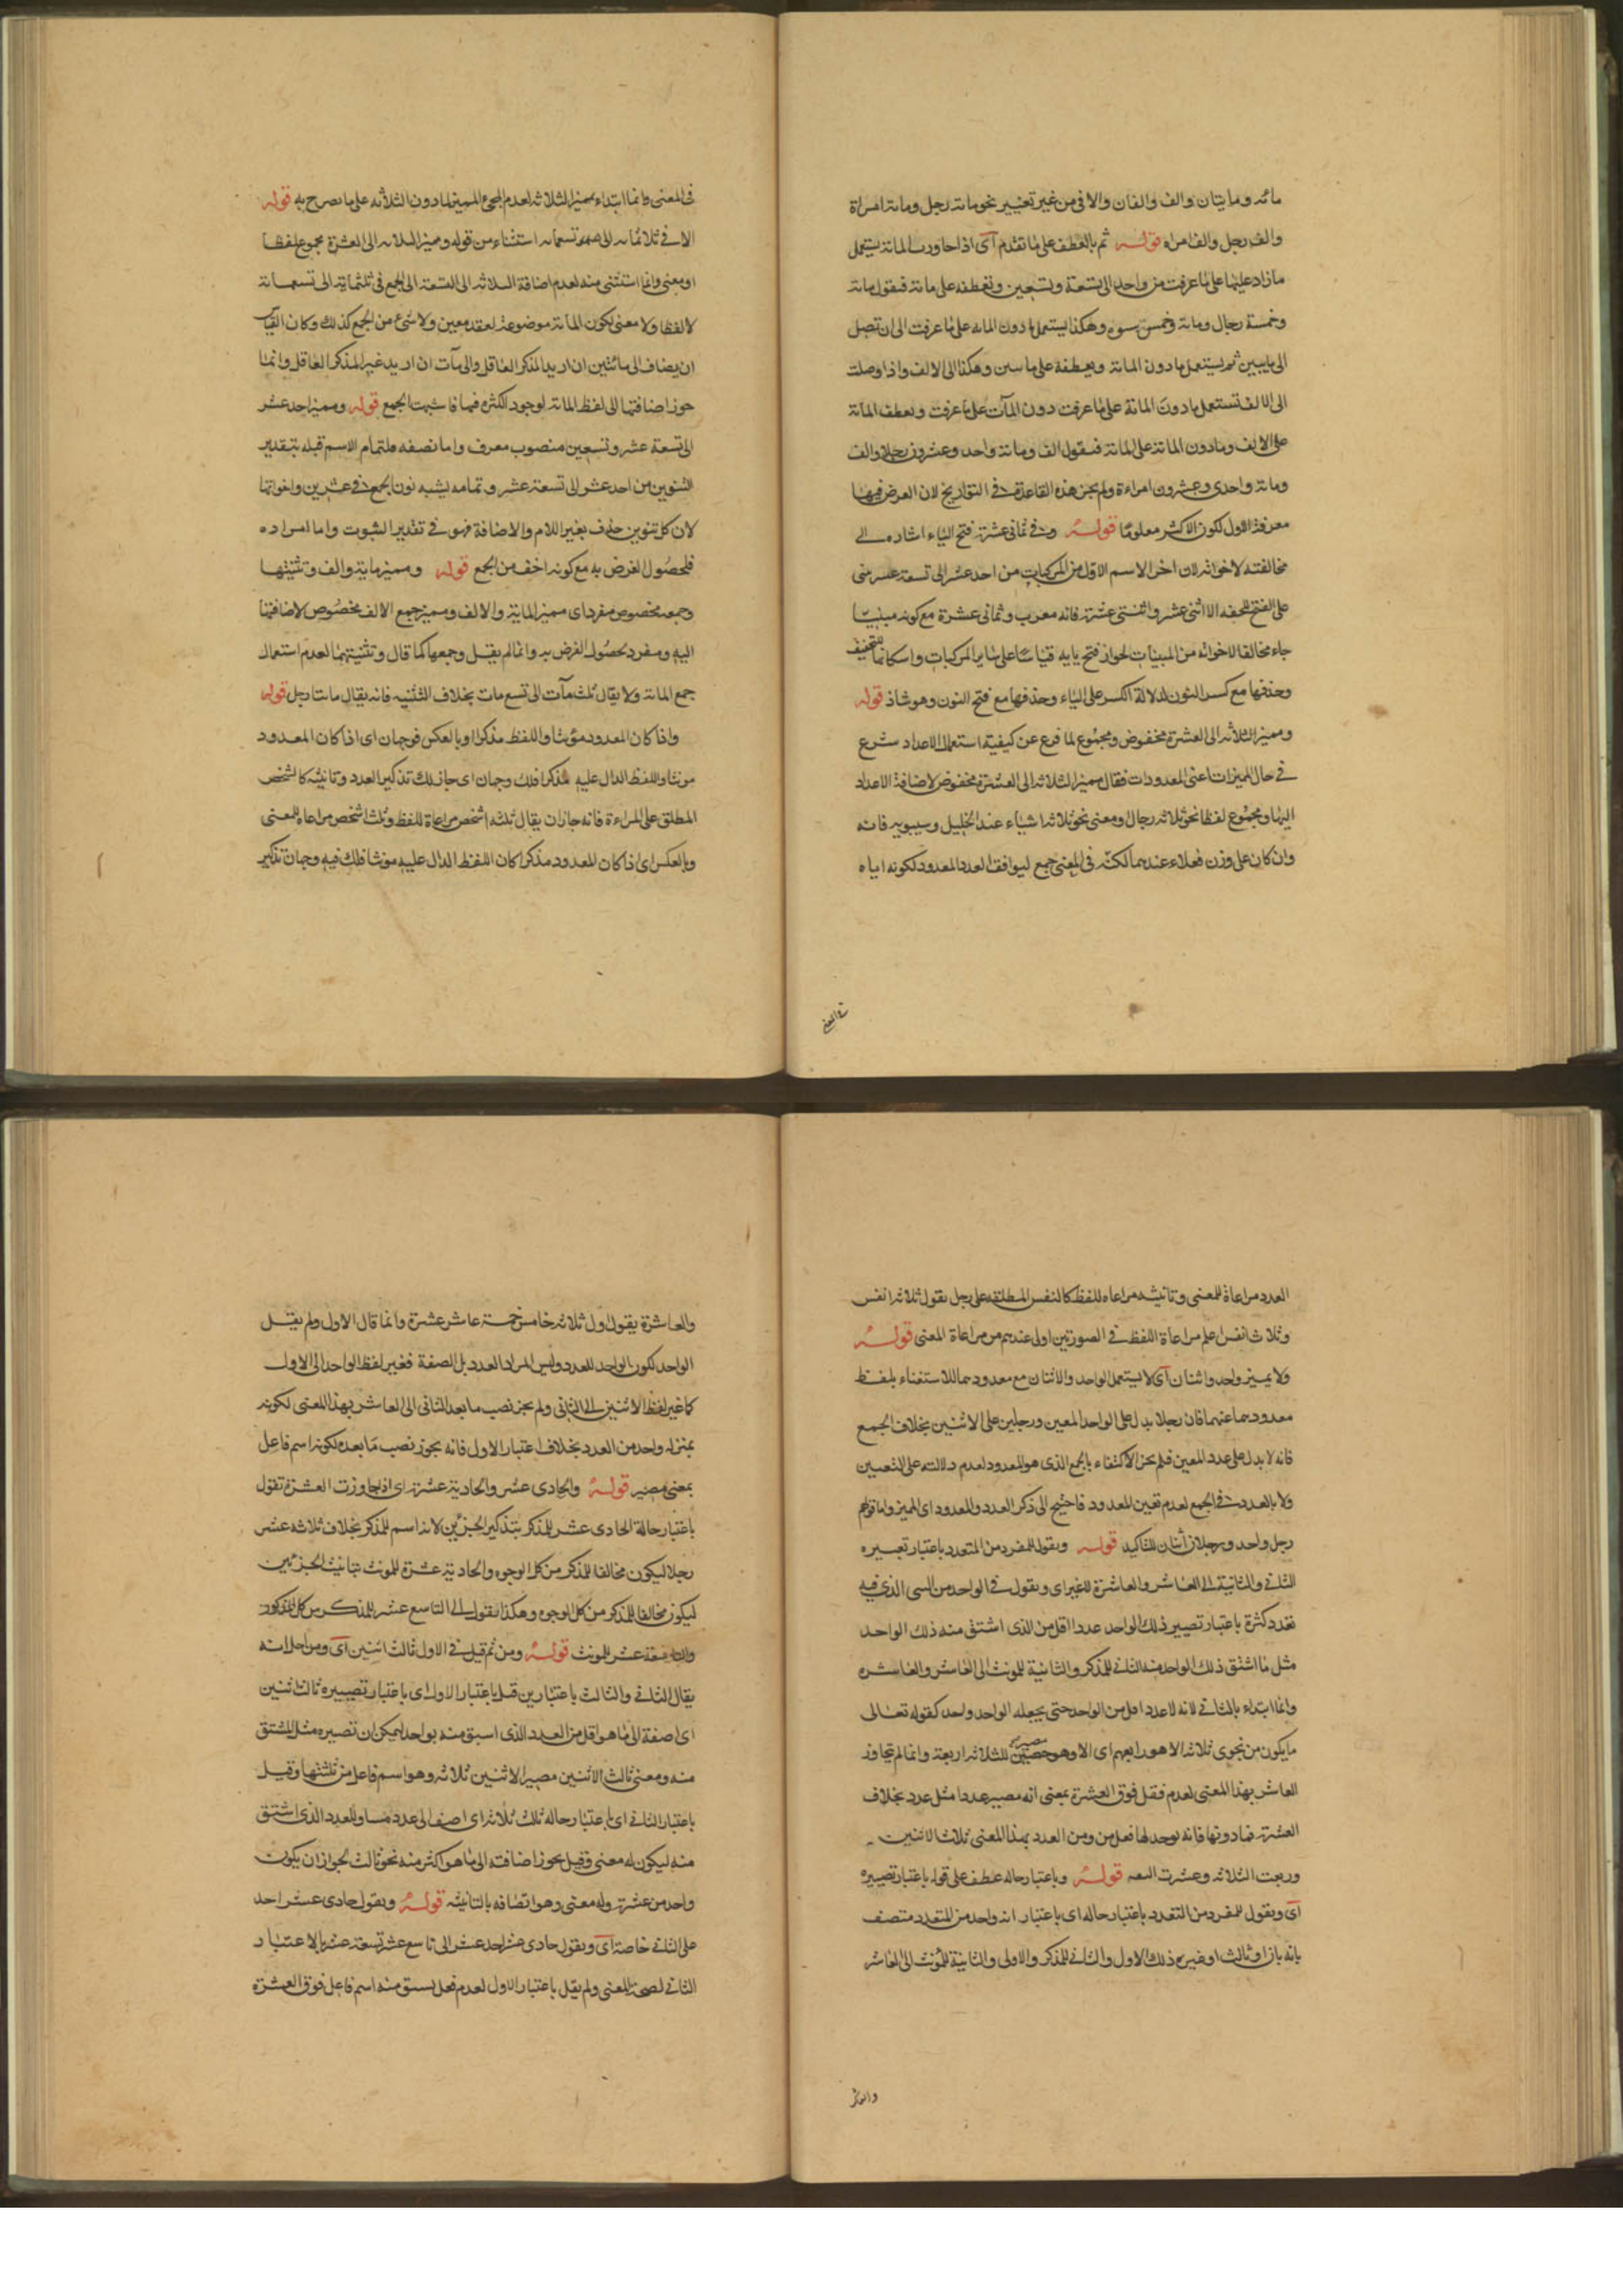 مائه ومايتان والف والفان والافى من غير تغيير نحو مائة رجل ومائة امراة
والف رجل والف امراه قوله ثم بالعطف على ما تقدم اى اذا جاوزت المائة يستعمل
ما زاد عليها على ما عرفت من واحد الى تسعة وتسعين وتعطفه على مائة فيقول مائة
وخمسة رجال ومائة وخمس نسوه وهكذا يستعمل ما دون المائه على ما عرفت الى ان تصل
الى ثم يستعمل ما دون المائة ويعطفه على وهكذا الى الالف واذا وصلت
الى الالف تستعمل ما دون المائة على ما عرفت دون المآت على ما عرفت وتعطف المائة
على الالف وما دون المائة على المائة فيقول الف ومائة واحد وعشرون رجلا والف
ومائة واحدى وعشرون امراءة ولم يجز هذه القاعدة فى التواريخ لان الغرض فيها
معرفة الاول لكون الاكثر معلوما قوله وفى ثمانى عشرة فتح الياء اشاره الى
مخالفته لاخواته لان اخر الاسم الاول من المركبات من احد عشر الى تسعة عشر مبنى
على الفتح للخفه الا اثنى عشر واثنتى عشرة فانه معرب وثمانى عشرة مع كونه مبنيا
جاء مخالفا لاخواته من المبنيات لجواز فتح يايه قياسا على ساير المركبات واسكانها للتخفيف
وحذفها مع كسر النون لدلالة الكسر على الياء وحذفها مع فتح النون وهو شاذ قوله
ومميز الثلاثه الى العشرة مخفوض ومجموع لما فرغ عن كيفية استعمال الاعداد شرع
فى حال المميزات اعنى المعدودات فقال مميز الثلاثه الى العشرة مخفوض لاضافة الاعداد
اليها ومجموع لفظا نحو ثلاثه رجال ومعنى نحو ثلاثه اشياء عند الخليل وسيبويه فانه
وان كان على وزن فعلاء عندهما لكنه فى المعنى جمع ليوافق العدد المعدود لكونه اياه
فى المعنى
فى المعنى وانما ابتداء بمميز الثلاثه لعدم المجىء المميز لما دون الثلاثه على ما يصرح به قوله
الا فى ثلاثمائه الى تسعمائه استثناء من قوله ومميز الثلاثه الى العشرة مجموع لفظا
او معنى وانما استثنى منه لعدم اضافة الثلاثه الى التسعة الى الجمع فى ثلثمائة الى تسعمائة
لا لفظا ولا معنى لكون المائة موضوعة لعقد معين ولا شىء من الجمع كذلك وكان القياس
ان يضاف الى مائتين ان اريد المذكر العاقل والى مآت ان اريد غير المذكر العاقل وانما
جوز اضافتها الى لفظ المائة لوجود الكثره فيها فاشبهت الجمع قوله ومميز احد عشر
الى تسعة عشر وتسعين منصوب معرف واما نصفه فلتمام الاسم قبله بتقدير
التنوين من احد عشر الى تسعة عشر وتمامه بشبه نون الجمع فى عشرين واخواتها
لان كل تنوين حذف بغير اللام والاضافة فهو فى تقدير الثبوت واما افراده
فلحصول الغرض به مع كونه اخف من الجمع قوله ومميز ماية والف وتثنيتها
وجمعه مخفوض مفرد اى مميز الماية والالف ومميز جمع الالف مخفوض لاضافتها
اليه ومفرد لحصول الغرض به وانما لم يقل وجمعها كما قال وتثنيتهما لعدم استعمال
جمع المائة ولا يقال ثلث مآت الى تسع مات بخلاف التثنيه فانه يقال مايتا رجل قوله
واذا كان المعدود مؤنثا واللفظ مذكرا او بالعكس فوجهان اى اذا كان المعدود
مونثا واللفظ الدال عليه مذكرا فلك وجهان اى جاز لك تذكير العدد وتانيثه كالشخص
المطلق على المراءة فانه جاز ان يقال ثلثه اشخص مراعاة للفظ وثلث اشخص مراعاه للمعنى
وبالعكس اى اذا كان المعدود مذكرا كان اللفظ الدال عليه مونثا فلك فيه وجهان تذكير
العدد مراعاة للمعنى وتانيثه مراعاه للفظ كالنفس المطلقه على رجل يقول ثلاثه انفس
وثلاث انفس اعلم مراعاة اللفظ فى الصورتين اولى عندهم من مراعاة المعنى قوله
ولا يميز واحد واثنان اى لا يستعمل الواحد والاثنان مع معدودهما للاستغناء بلفظ
معدودهما عنهما فان رجلا يدل على الواحد المعين ورجلين على الاثنين بخلاف الجمع
فانه لا يدل على عدد المعين فلم يجز الاكتفاء بالجمع الذى هو المعدود لعدم دلالته على التعيين
ولا بالعدد فى الجمع لعدم تعين المعدود فاحتيج الى ذكر العدد والمعدود اى المميز واما قولهم
رجل واحد ورجلان اثنان للتاكيد قوله ويقول للمفرد من المتعدد باعتبار تصييره
الثانى والثانية الى العاشر والعاشرة للغير اى ويقول فى الواحد من الذى فيه
تعدد كثرة باعتبار تصيير ذلك الواحد عددا اقل من الذى اشتق منه ذلك الواحد
مثل ما اشتق ذلك الواحد منه الثانى للمذكر والثانية للمونث الى العاشر والعاشره
وانما ابتداء بالثانى لانه لا عدد اقل من الواحد حتى يجعله الواحد واحد كقوله تعالى
ما يكون من نجوى ثلاثه الا هو رابعهم اى الا وهو مصير للثلاثه اربعة وانما لم يتجاوز
العاشر بهذا المعنى لعدم فعل فوق العشرة بمعنى انه مصير عددا مثل عدد بخلاف
العشرة فما دونها فانه يوجد لها فعل من ومن العدد بهذا المعنى ثلاث الاثنين
وربعت الثلاثه وعشرت قوله وباعتبار حاله عطف على قوله باعتبار تصييره
اى ويقول للمفرد من التعدد باعتبار حاله اى باعتبار انه واحد من المتعدد متصف
بانه او ثالث او غيره ذلك الاول والثانى للمذكر والاولى والثانية للمؤنث الى العاشر
والعاشر
والعاشرة يقول اول ثلاثه خامس خمسة عاشر عشرة وانما قال الاول ولم يقل
الواحد لكون الواحد للعدد وليس المراد العدد بل الصفة فغير لفظ الواحد الى الاول
كما غير لفظ الاثنين الى الثانى ولم يجز نصب ما بعد الثانى الى العاشر بهذا المعنى لكونه
بمنزله واحد من العدد بخلاف اعتبار الاول فانه يجوز نصب ما بعده لكونه اسم فاعل
بمعنى مصير قوله والحادى عشر والحادية عشرة اى اذا جاوزت العشرة تقول
باعتبار حالة الحادى عشر للمذكر بتذكير الجزئين لانه اسم للمذكر بخلاف ثلاثه عشر
رجلا ليكون مخالفا للمذكر من كل الوجوه والحادية عشرة للمونث بتانيث الجزئين
ليكون مخالفا للمذكر من كل الوجوه وهكذا يقول الى التاسع عشر للمذكر من كل المذكور
والتاسعة عشر للمونث قوله ومن ثم قيل فى الاول ثالث اثنين اى ومن اجل انه
يقال الثانى والثالث باعتبارين قيل باعتبار الاول اى باعتبار تصييره ثالث اثنين
اى اضفة الى ما هو اقل من العدد الذى اسبق منه بواحد ليمكن ان تصيره مثل المشتق
منه ومعنى ثالث الاثنين مصير الاثنين ثلاثه وهو اسم فاعل من ثلثتها وقيل
باعتبار الثانى اى باعتبار حاله ثالث ثلاثه اى اضف الى عدد مساو للعدد الذى اشتق
منه ليكون له معنى وقيل يجوز اضافته الى ما هو اكثر منه نحو ثالث لجواز ان يكون
واحد من عشرة وله معنى وهو اتصافه بالثانيه قوله ويقول حادى عشر احد
على الثانى خاصة اى ويقول حادى عشر احد عشر الى تاسع عشر تسعة عشر بالاعتبار
الثانى لصحة المعنى ولم يقل باعتبار الاول لعدم فعل يشتق منه اسم فاعل فوق العشرة